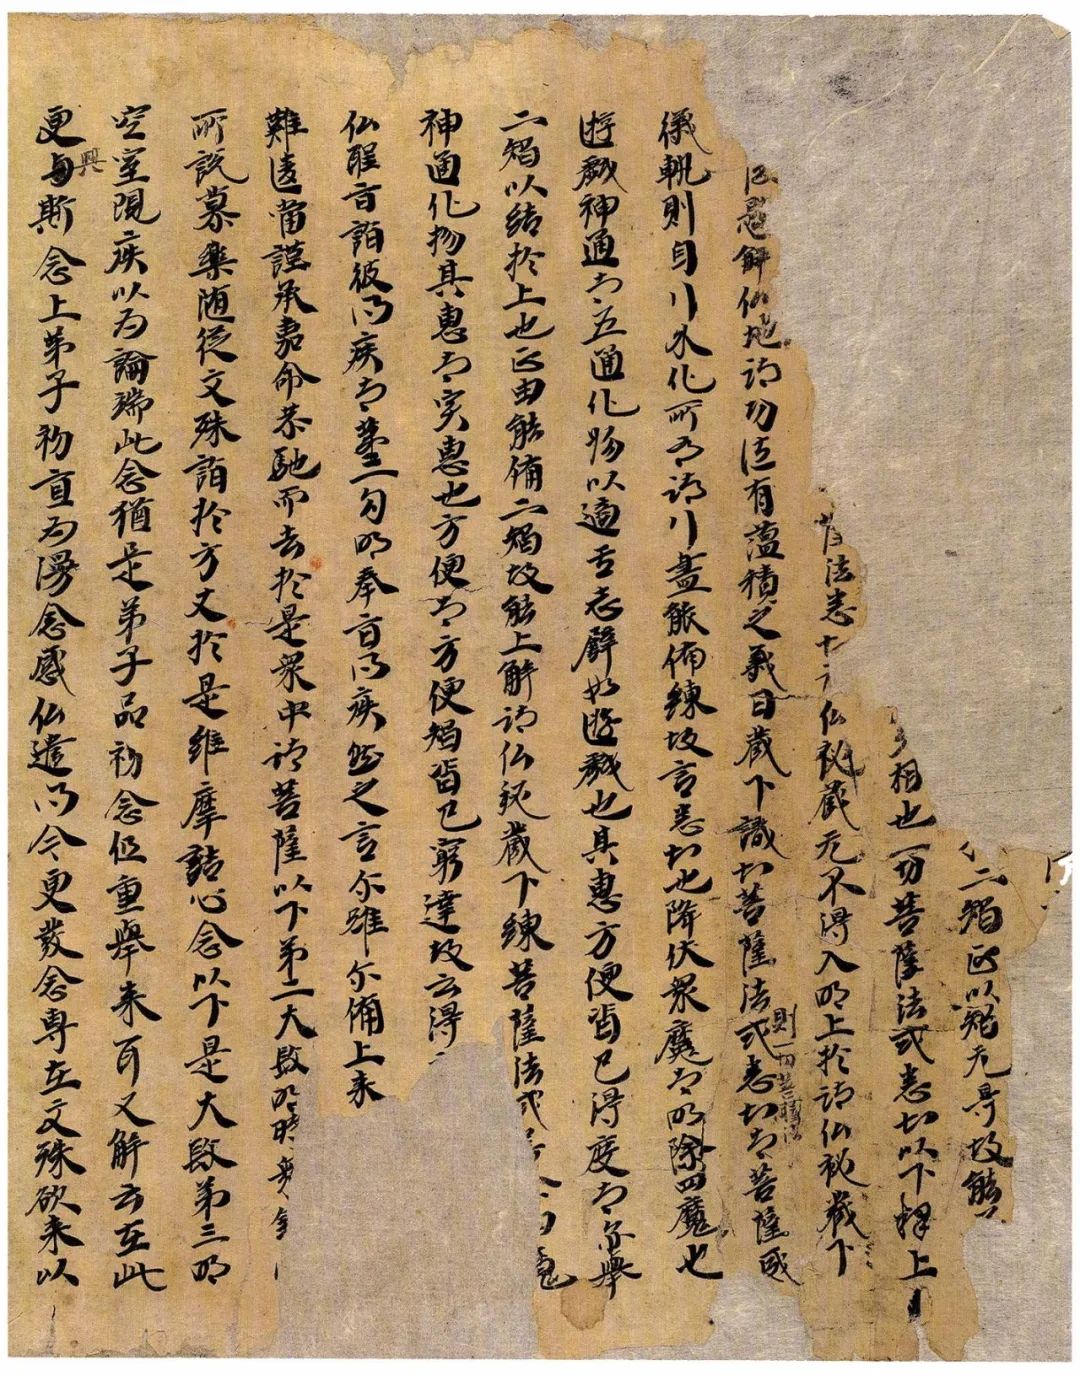 二智正以智无㝵故能
相也一切菩薩法式悉知以下釋上
薩法悉 仏秘藏无不得入明上於諸仏秘藏下
懸解仏地諸功德有蘊積之義曰藏下識知菩薩法式悉知者菩薩威
則一切菩薩法
儀軌則自行外化所有諸行盡能備練故言悉知也降伏衆魔者明除四魔也
遊戲神通者五通化物以適吾志譬如遊戲也其惠方便皆已得度者舉
二智以結於上也正由能備二智故能上解諸仏秘藏下練菩薩法式
神通化物其惠者実惠也方便者方便智皆已窮達故云得
仏聖旨詣彼問疾者第一句明奉旨問疾然之言尔雖尔備上来
難遠當謹承嘉命恭馳而去於是衆中諸菩薩以下第二大段明時衆
所說慕樂随従文殊詣於方丈於是維摩詰心念以下是大段第三明
空室現疾以為論端此念猶是弟子品初念但重舉来耳又解云在此
興
更与斯念上弟子初直為漫念感仏遣問今更發念専在文殊欲来以